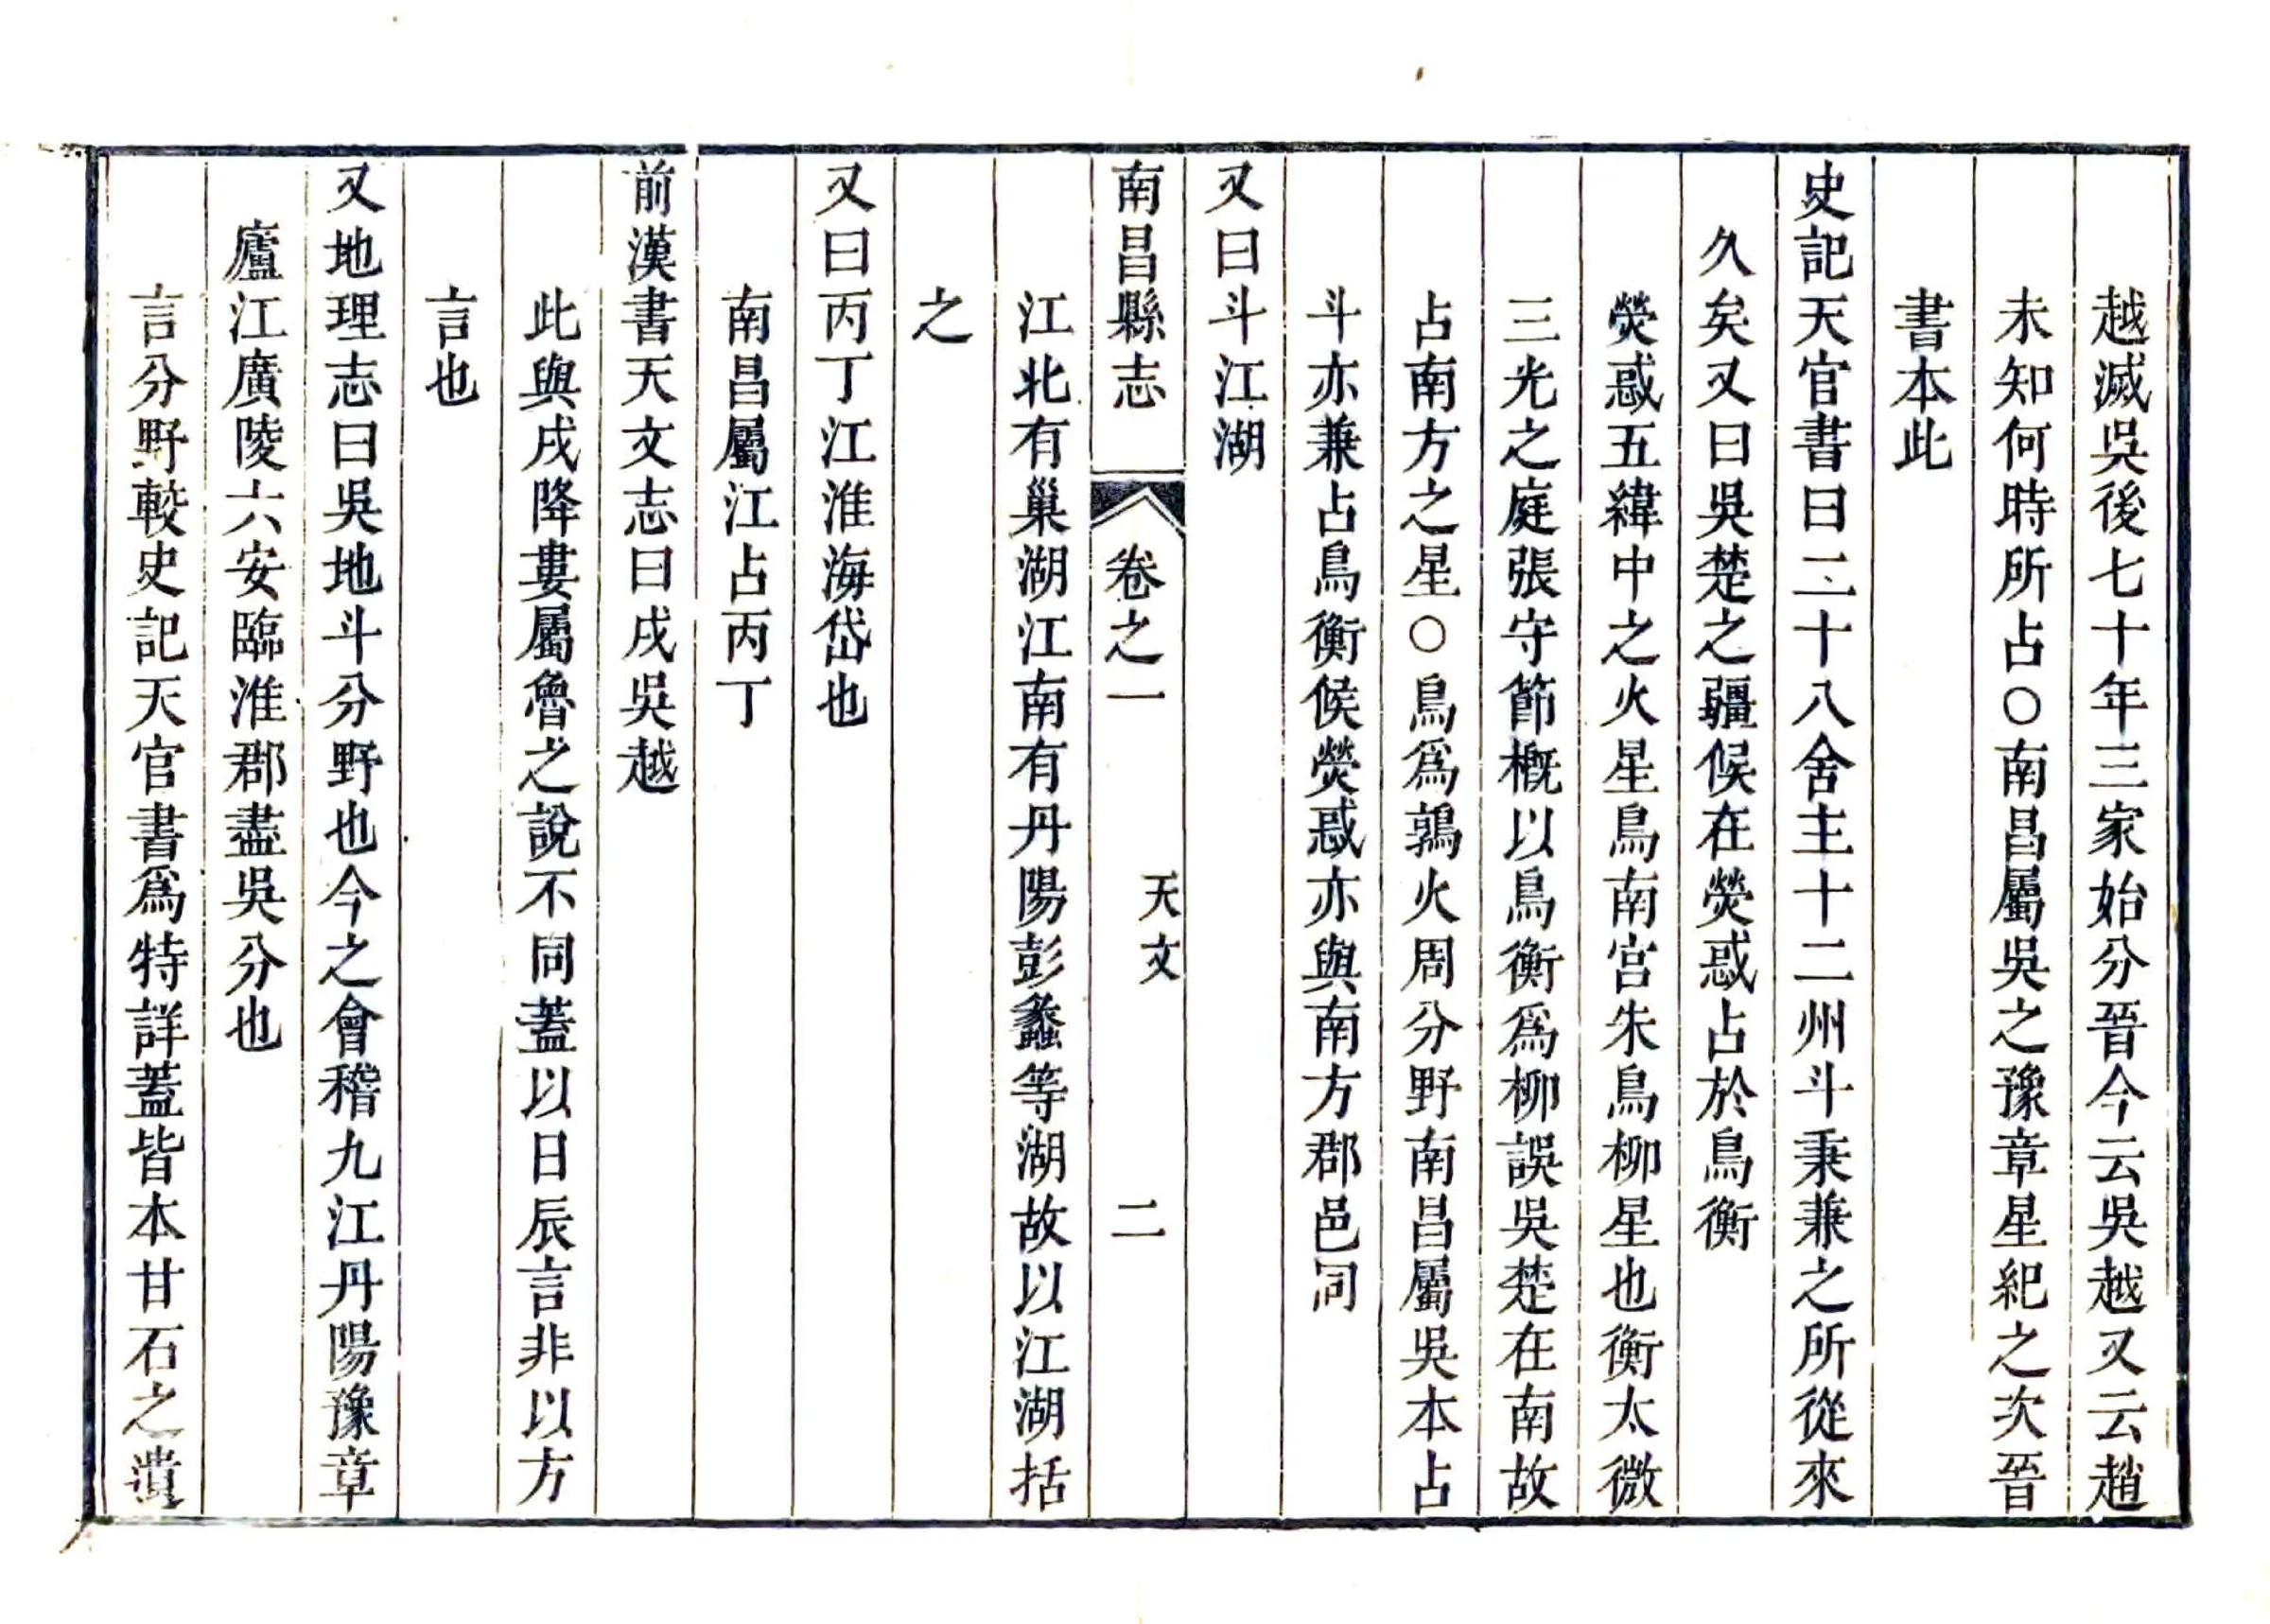 越滅吳後七十年三家始分晉今云吳越又云趙
未知何時所占○南昌屬吳之豫章星紀之次晉
書本此
史記天官書曰二十八舍主十二州斗秉兼之所從來
久矣又曰吳楚之疆候在熒惑占於鳥衡
熒惑五緯中之火星鳥南宮朱鳥柳星也衡太微
三光之庭張守節槪以鳥衡爲柳誤吳楚在南故
占南方之星○鳥爲鶉火周分野南昌屬吳本占
斗亦兼占鳥衡候熒惑亦與南方郡邑同
又曰斗江湖
南昌縣志 卷之一 天文 二
江北有巢湖江南有丹陽彭蠡等湖故以江湖括
之
又曰丙丁江淮海岱也
南昌屬江占丙丁
前漢書天文志曰戌吳越
此與戌降婁屬魯之說不同蓋以日辰言非以方
言也
又地理志曰吳地斗分野也今之會稽九江丹陽豫章
廬江廣陵六安臨淮郡盡吳分也
言分野較史記天官書爲特詳蓋皆本甘石之遺